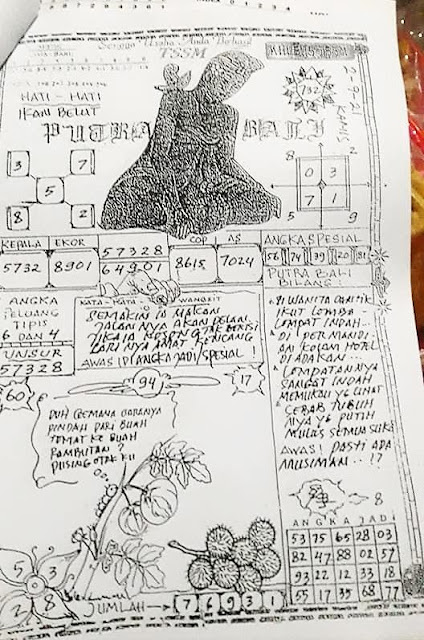 0 1 2 3 4
Semoga Usaha Anda Berhasil
TSSM
2-9-21
KAMIS
732
HATI - HATI
IKAN BELUT
PUTRA BALI
3 7
5
8 2
8 2
0 3
7 1
5 9
KEPALA EKOR 57328 COP AS
5732 8901 64901 8615 7024
ANGKA SPESIAL
56 74 39 20 81
PUTRA BALI
BILANG :
ANGKA
PELUANG
TIPIS
6 DAN 4
UNSUR
57328
KATA - KATA WANGSIT
SEMAKIN IA MAKAN
JALANNYA AKAN PELAN.
JIKALA KOSONG TAK BERISI
LARINYA AMAT KENCANG
AWAS ID ANGKA JADI/SPESIAL !
81 WANITA CANTIK
IKUT LOMBA -
LOMPAT INDAH..
DI PERMANDI
AN KOLAM HOTEL
DI ADAKAN..
LOMPATANNYA
SANGAT INDAH
MEMUKAU YG LIHAT
SEBAB TUBUH
NYA YG PUTIH
MULUS SEMUA SUKA
AWAS! PASTI ADA
MUSIMAN..!?
60
94
17
DUH GEMANA CARANYA
PINDAH DARI BUAH
TOMAT KE BUAH
RAMBUTAN ?
PUSING OTAK KU
8
ANGKA JADI
53 75 65 28 03
82 47 88 02 57
93 22 12 33 18
55 17 35 68 77
5 3
0
2 8
JUMLAH → 7 6 9 3 1